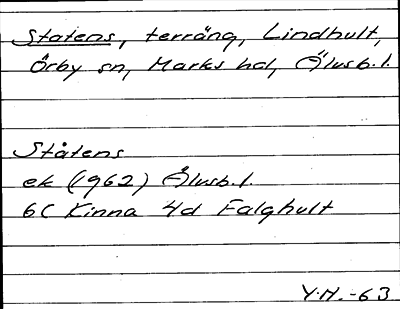 Statens, terräng, Lindhult,
Örby sn, Marks hd, Älvsb. l.
Ståtens
ek (1962) Älvsb. l.
6C Kinna 4d Falghult
Y.H. -63